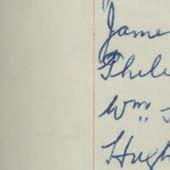 Jame
Phile
Wm
Hugh